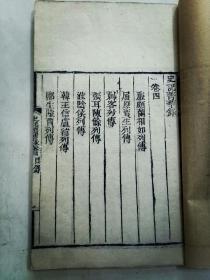 史記菁華錄
卷四
廉頗藺相如列傳
屈原賈生列傳
刺客列傳
張耳陳餘列傳
淮陰侯列傳
韓王信盧綰列傳
酈生陸賈列傳
目錄